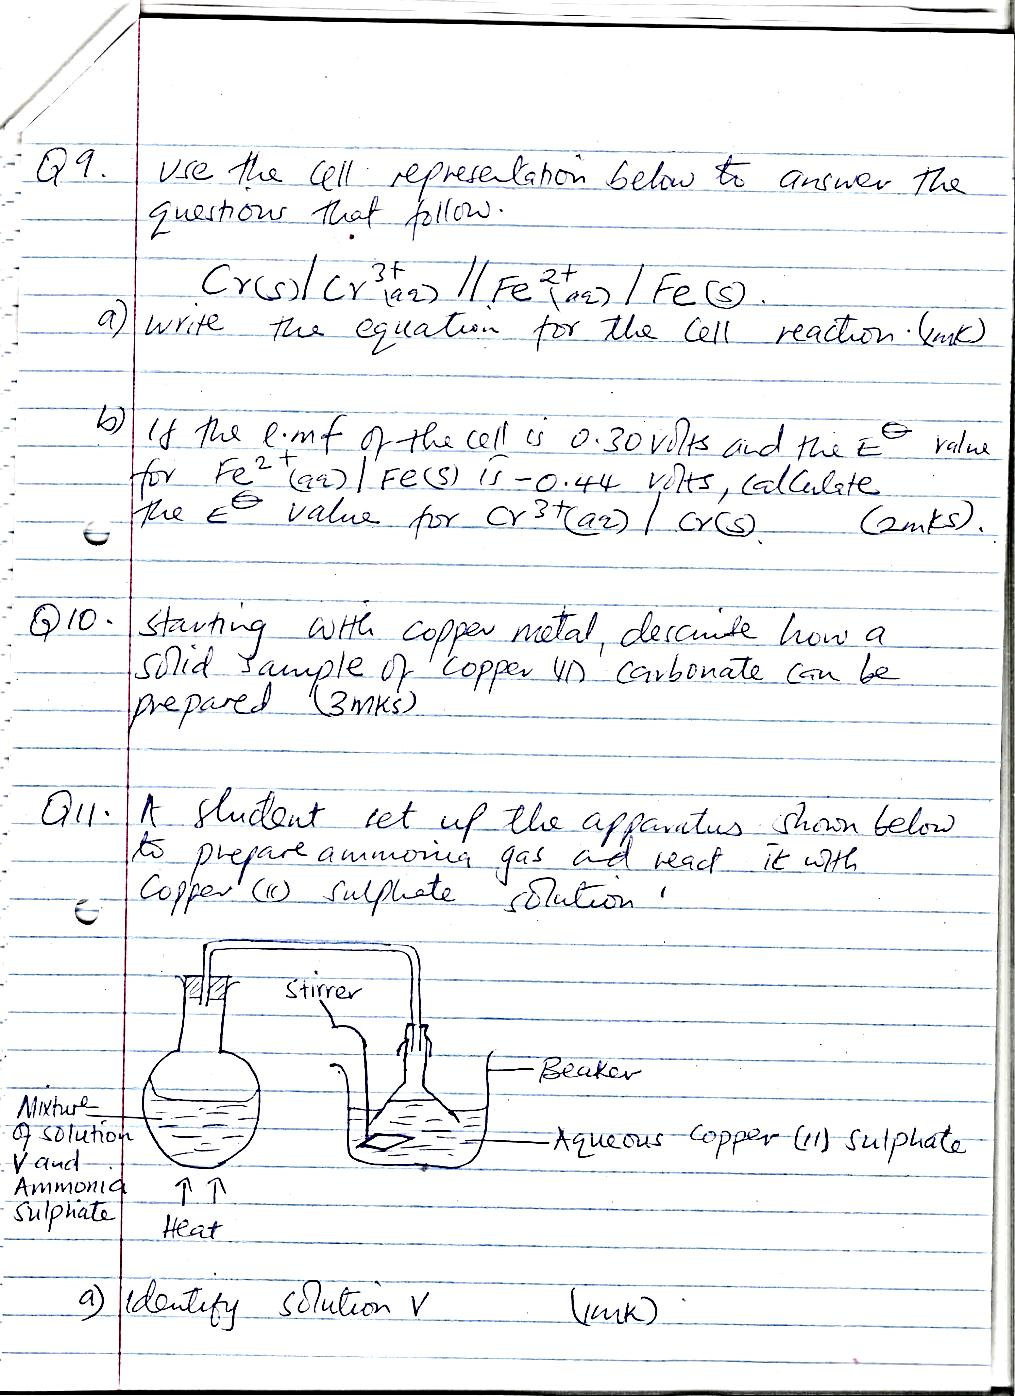 Q9. Use the cell representation below to answer the
questions that follow.
Cr(s) / Cr³⁺(aq) // Fe²⁺(aq) / Fe(s).
a) Write the equation for the cell reaction. (1mk)
b) If the e.m.f of the cell is 0.30 volts and the E⊖ value
for Fe²⁺(aq) / Fe(s) is -0.44 volts, calculate
the E⊖ value for Cr³⁺(aq) / Cr(s). (2mks).
Q10. Starting with copper metal, describe how a
solid sample of copper (II) carbonate can be
prepared (3mks)
Q11. A student set up the apparatus shown below
to prepare ammonia gas and react it with
Copper (II) sulphate solution.
Stirrer
Beaker
Mixture
of solution
V and
Ammonia
sulphate
Aqueous Copper (II) sulphate
Heat
a) Identify solution V (1mk)